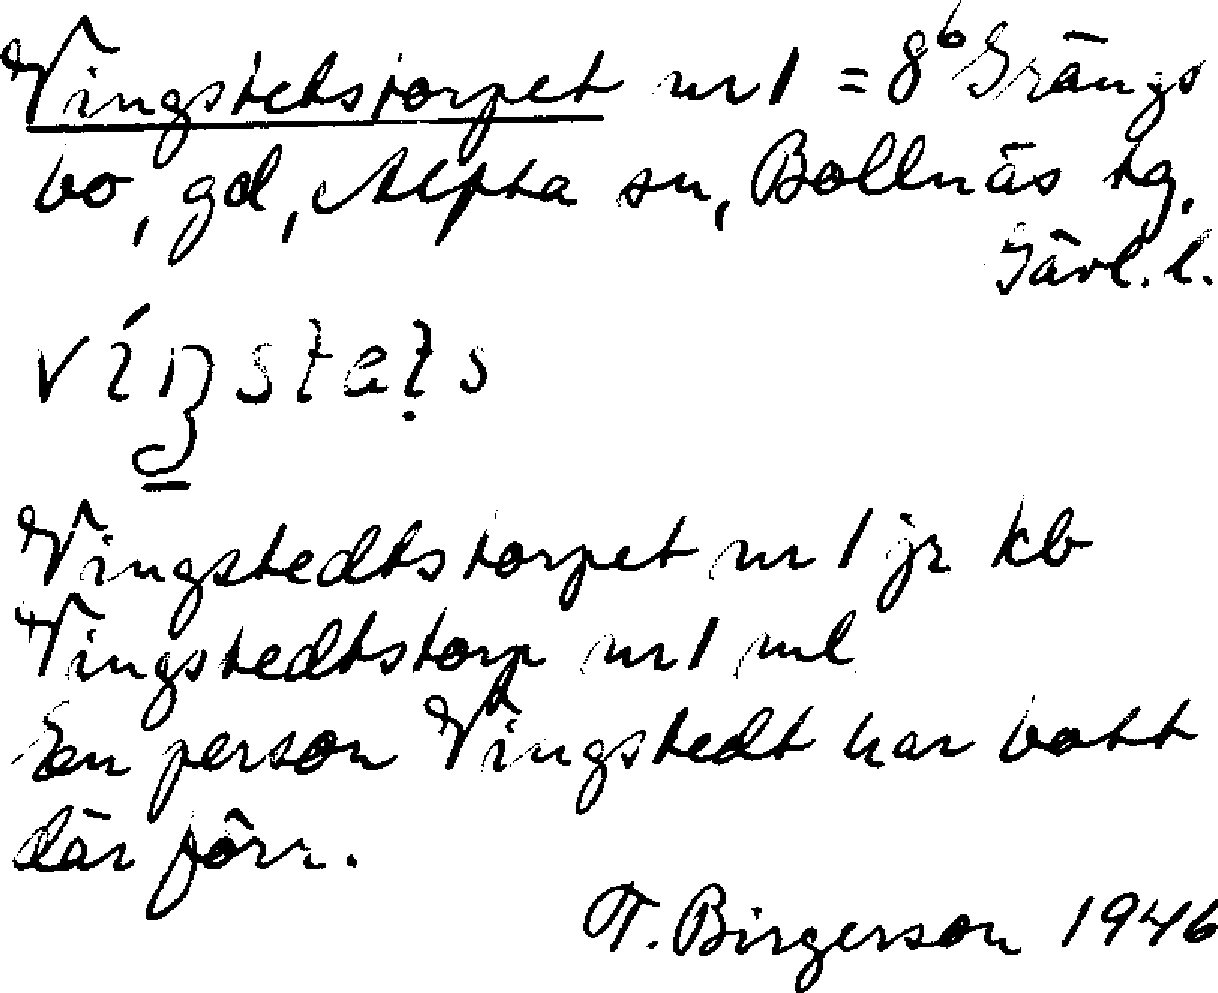 Vingstetstorpet nr 1 = 8⁶ Grängs
bo, gd, Alfta sn, Bollnäs tg,
Gävl. l.
Vingstedtstorpet nr 1 jr kb
Vingstedtstorp nr 1 ml
En person Vingstedt har bott
där förr.
T. Birgerson 1946